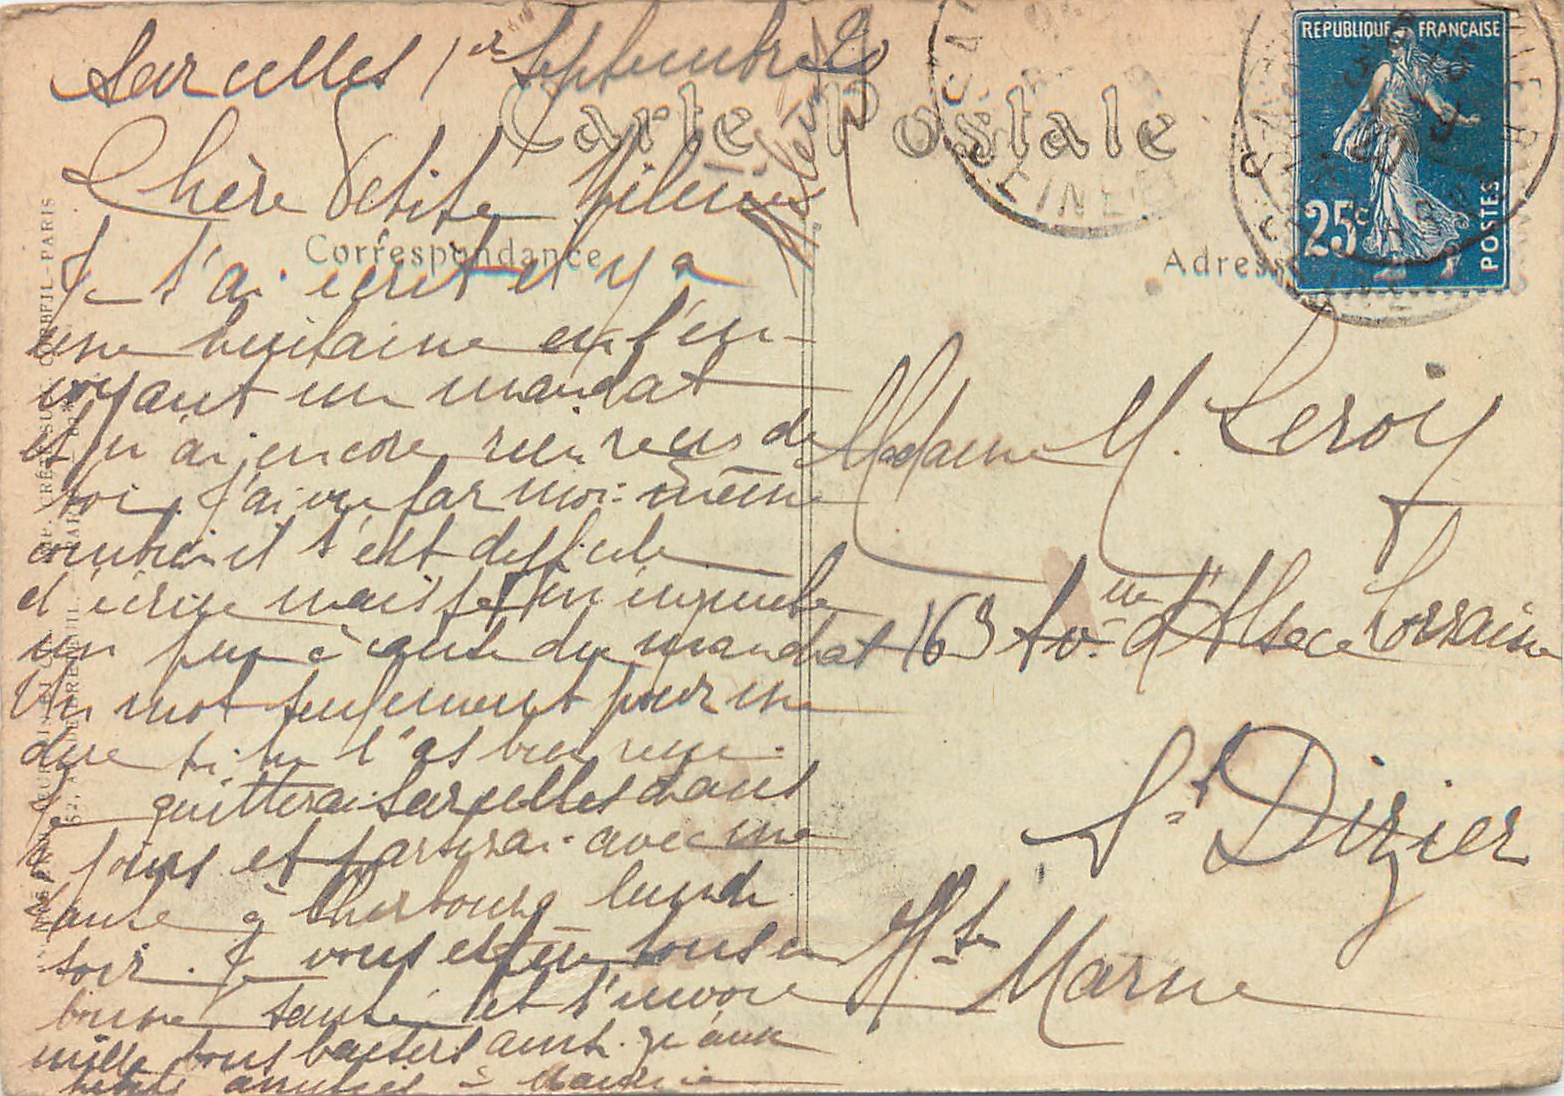 Sarcelles 1er Septembre 20
Chère Petite
Je t'ai écrit il y a
une huitaine en t'en-
voyant un mandat
et n'ai encore rien reçu de
toi, j'ai vu par moi-même
combien il t'est difficile
d'écrire mais je m'inquiete
un peu à cause du mandat
Un mot seulement pour me
dire si tu l'as bien reçu.
Je quitterai Sarcelles dans
jours et partirai avec ma
tante à Cherbourg lundi
soir. Je vous espère tous en
bonne santé et t'envoie
mille bons baisers ainsi qu'aux
petits
Carte Postale
Correspondance
Adresse
REPUBLIQUE FRANÇAISE
25c
POSTES
Madame M. Leroy
163 Av. d'Alsace Lorraine
St Dizier
Hte Marne